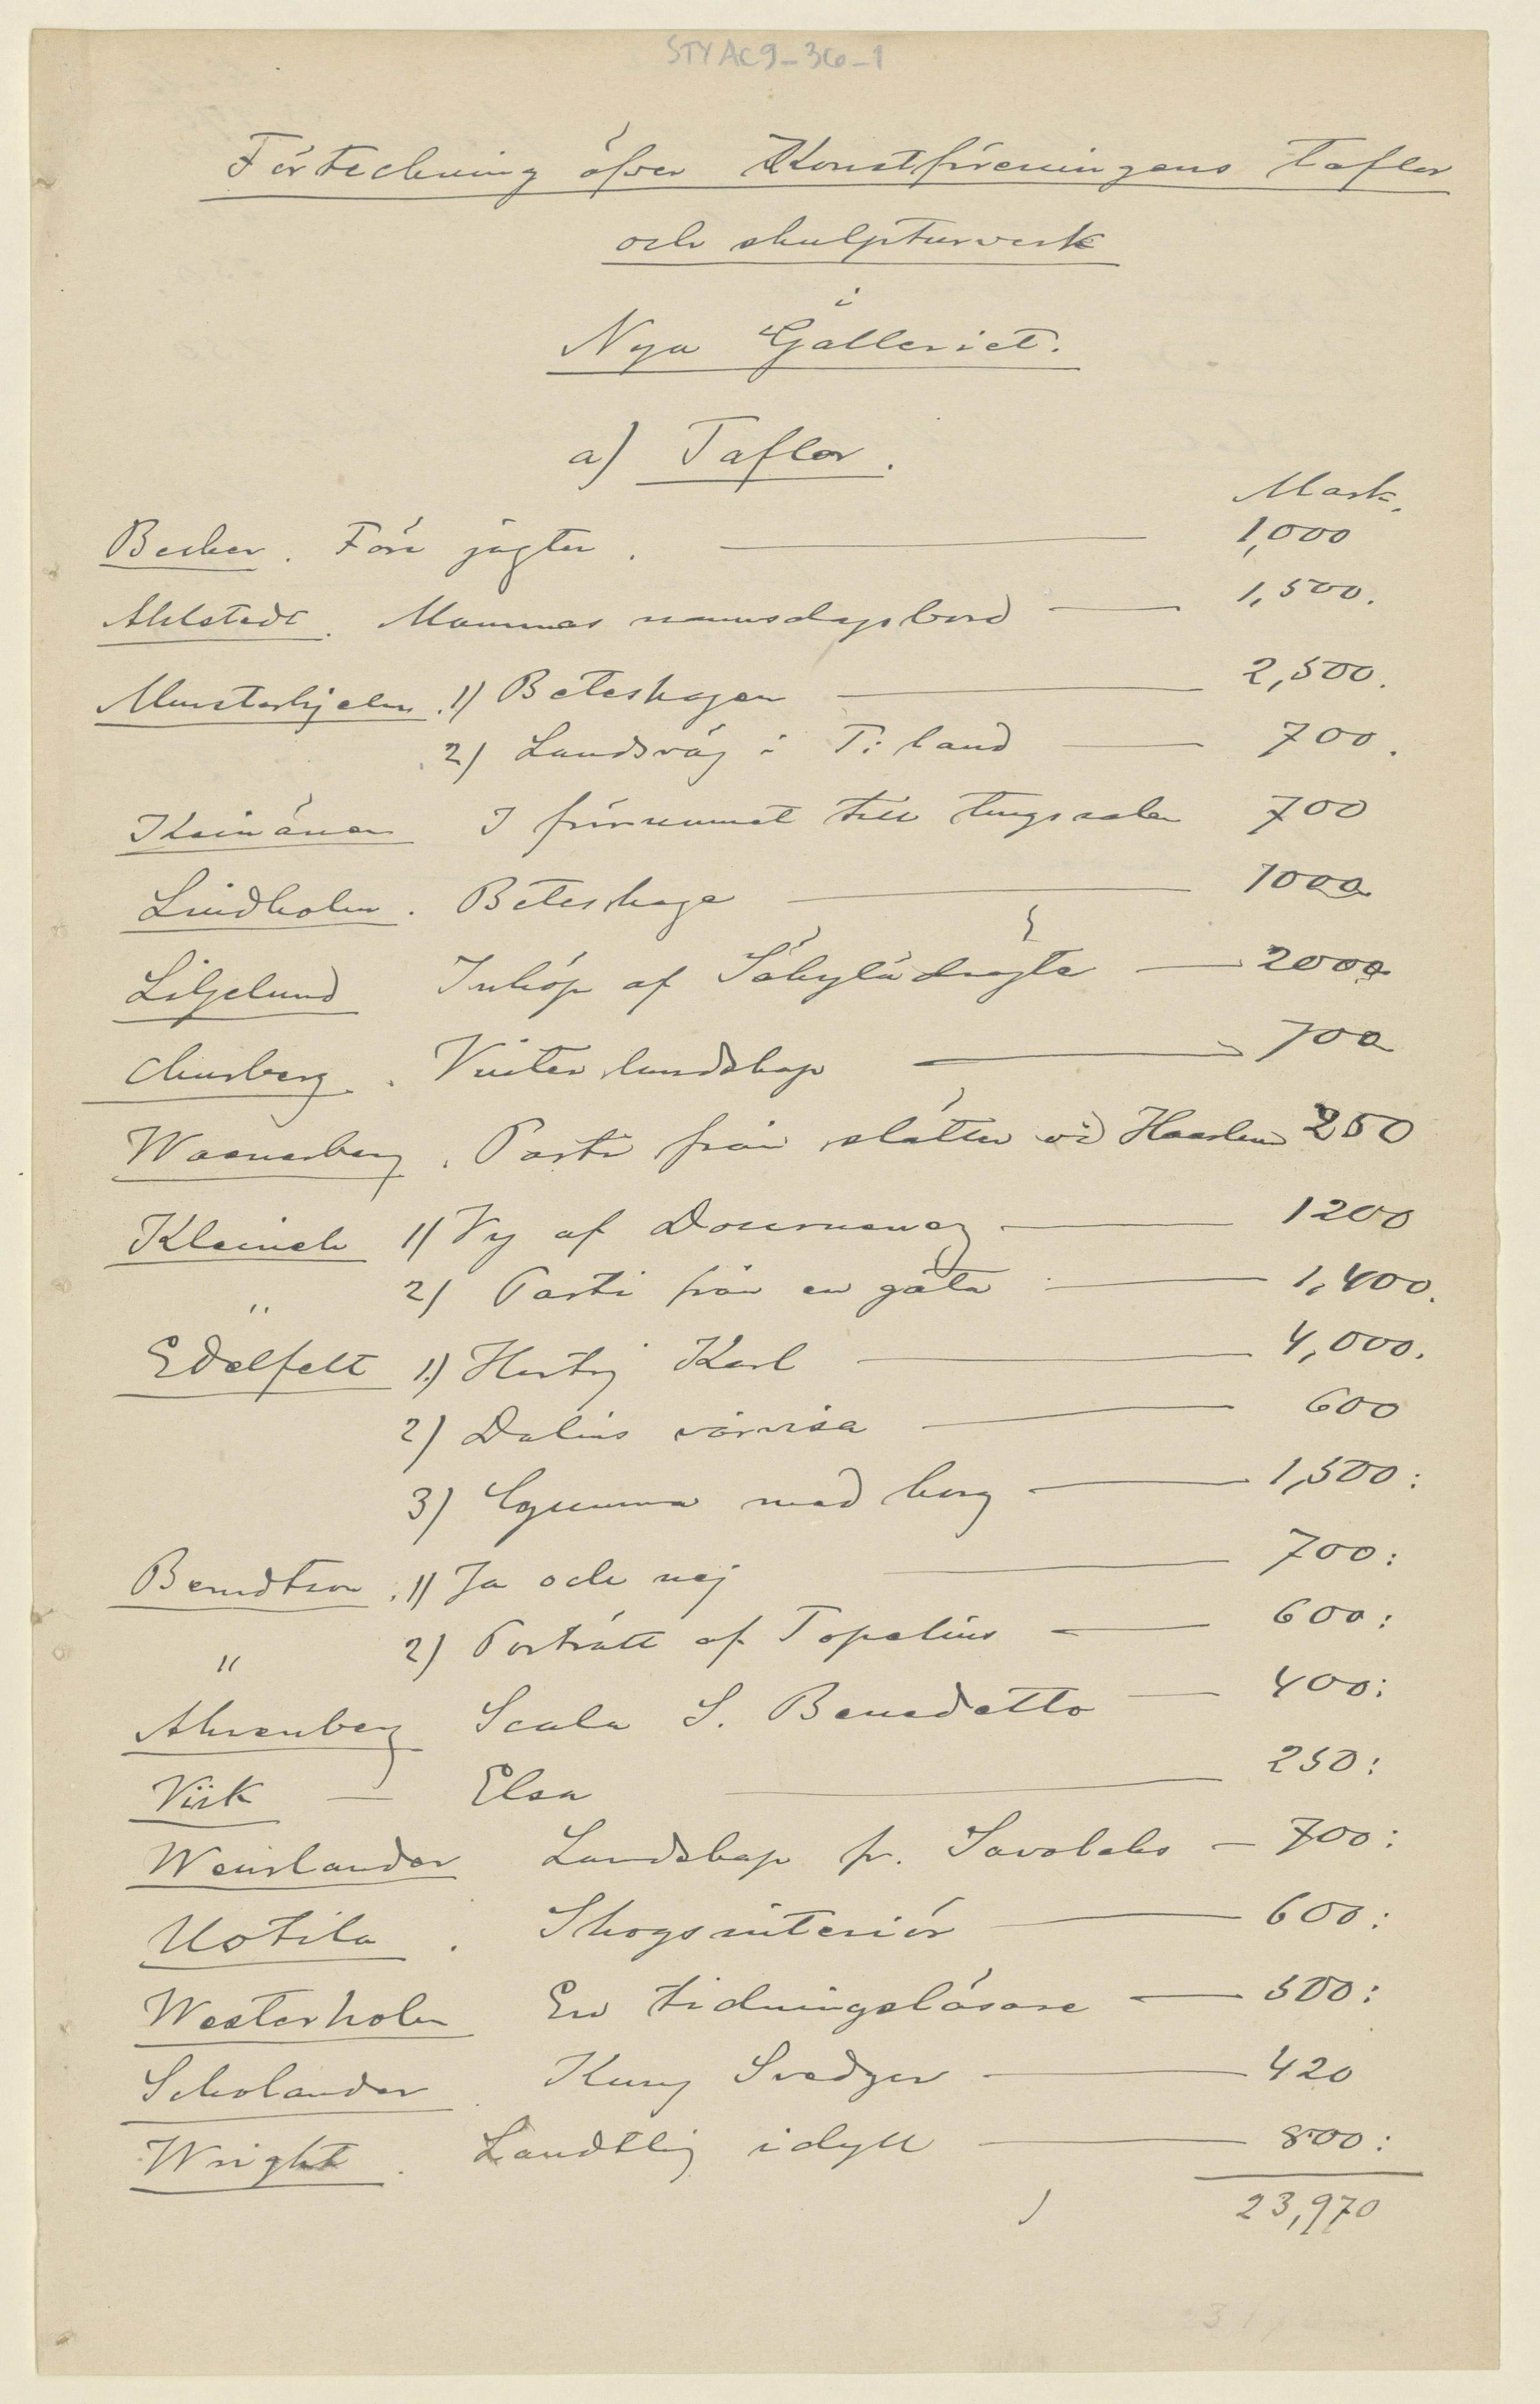 STY AC9_36_1
Förteckning öfver Konstföreningens taflor
och skulpturverk
i
Nya Galleriet.
a) Taflor.
Mark.
Becker. Före jagten. 1,000
Ahlstedt. Mammas namnsdagsbord 1,500.
Munsterhjelm. 1) Beteshagen 2,500.
2) Landsväg i T: land 700.
Kleinänen I förrummet till tingssalen 700
Lindholm. Beteshage 1000
Liljelund Inköp af Säkylädrägter 2000
Churberg. Vinterlandskap 700
Waenerberg. Parti från slätten vid Haarlem 250
Kleineh 1) Vy af Douarnenez 1200
" 2) Parti från en gata 1,400.
Edelfelt 1) Hertig Karl 4,000.
2) Dalins vårvisa 600
3) Gumma med korg 1,500:
Berndtson. 1) Ja och nej 700:
" 2) Porträtt af Topelius 600:
Ahrenberg Scala S. Benedetto 400:
Viik — Elsa 250:
Wenlander Landskap fr. Savolaks — 700:
Uotila. Skogsinteriör 600:
Westerholm En tidningsläsare 500:
Scholander Kung Svedger 420
Wright. Landtlig idyll 800:
23,970